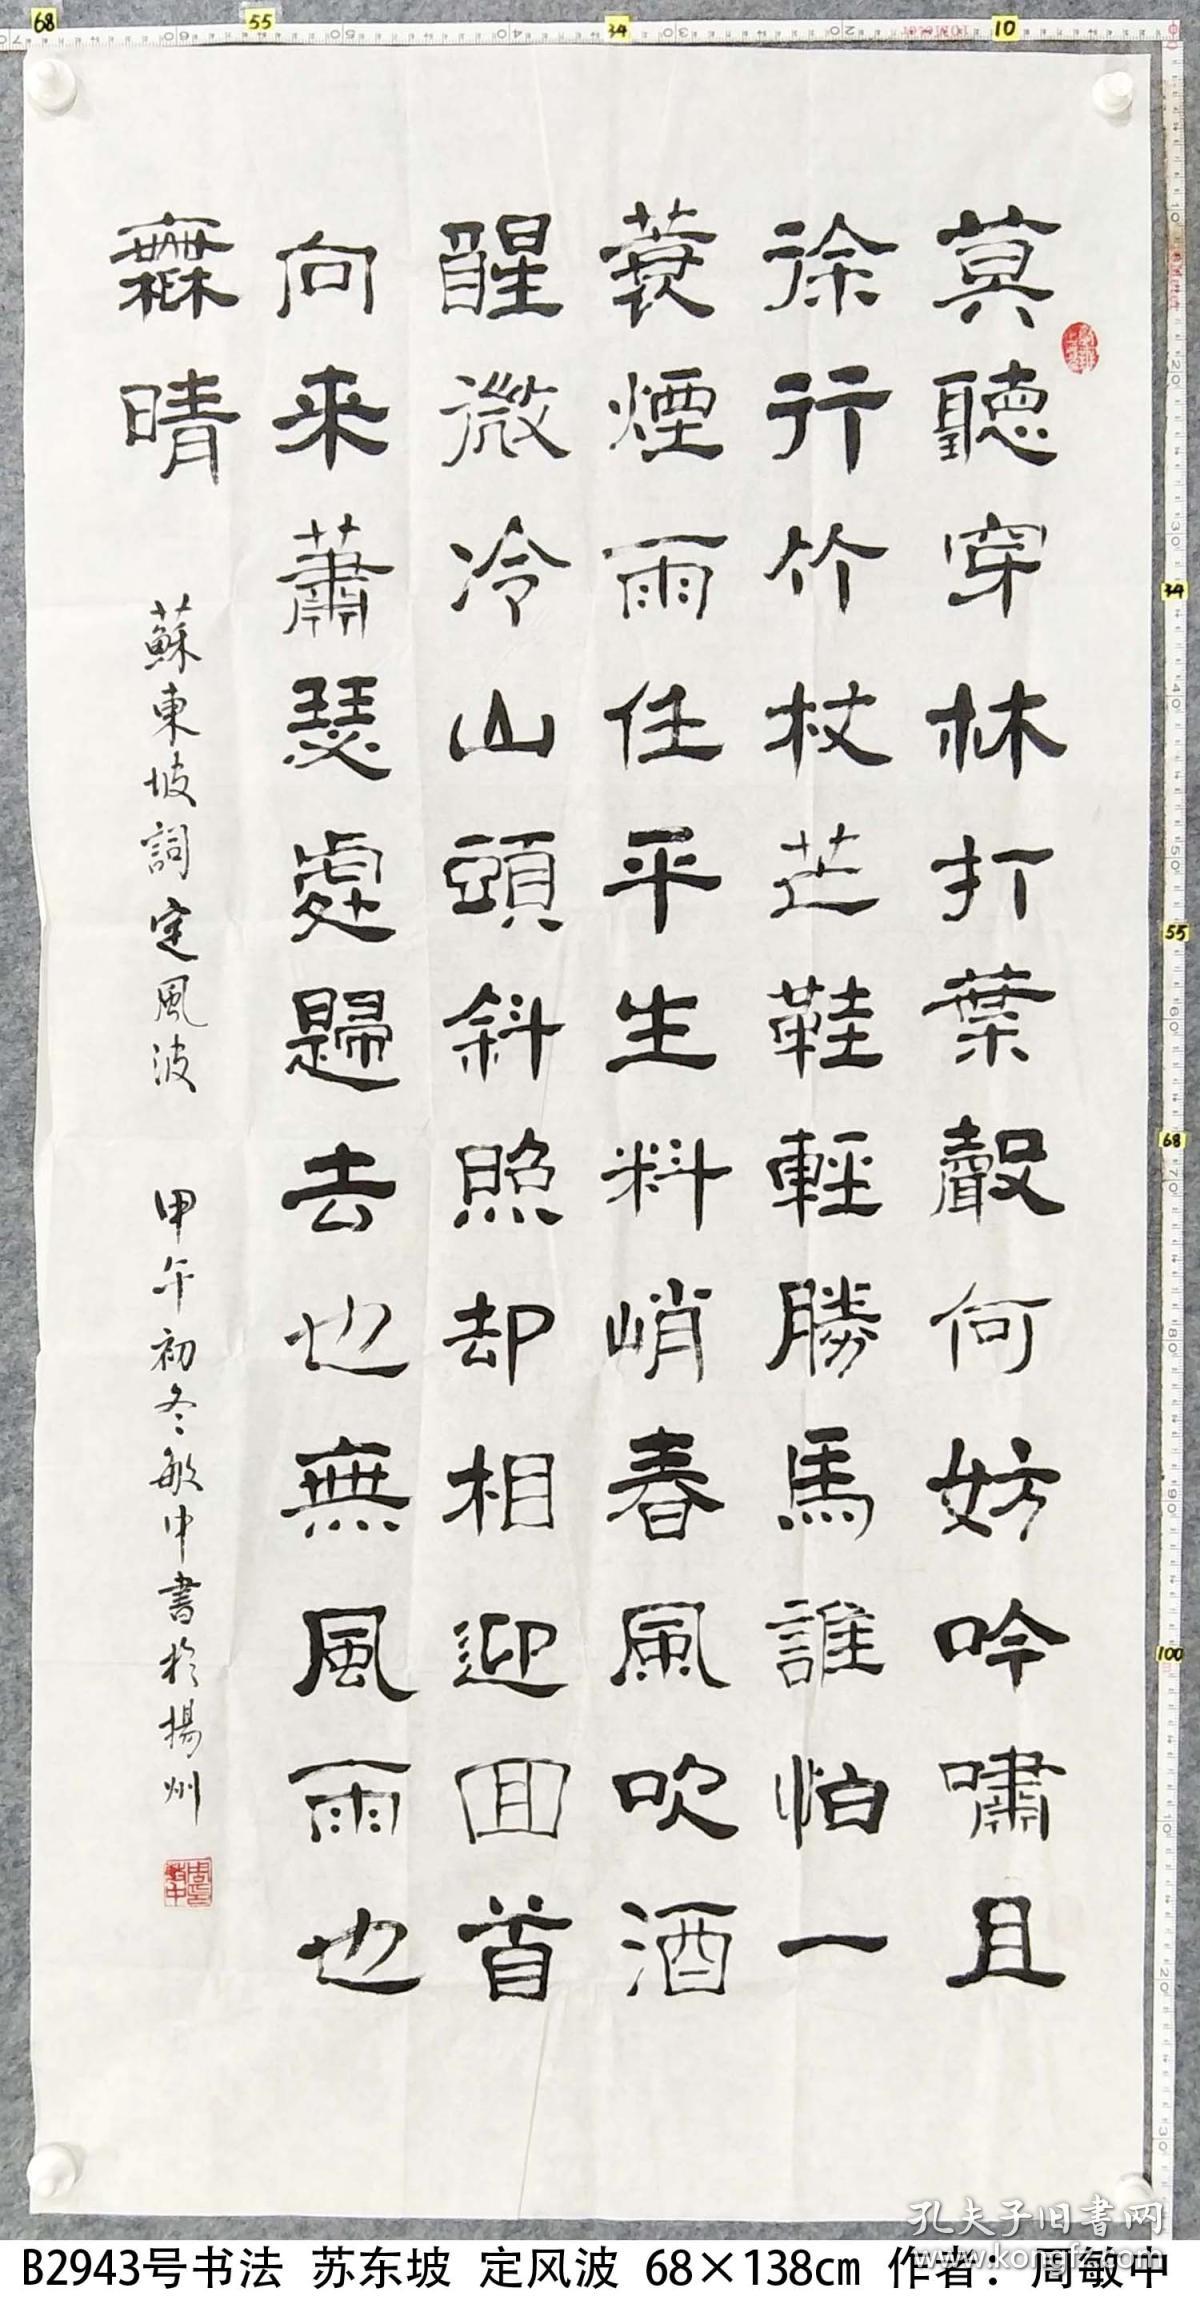 莫聽穿林打葉聲何妨吟嘯且
徐行竹杖芒鞋輕勝馬誰怕一
蓑煙雨任平生料峭春風吹酒
醒微冷山頭斜照却相迎回首
向来蕭瑟處歸去也無風雨也
無晴
蘇東坡詞定風波 甲午初冬敏中書於揚州
孔夫子旧书网
www.kongfz.com
B2943号书法 苏东坡 定风波 68×138cm 作者：周敏中